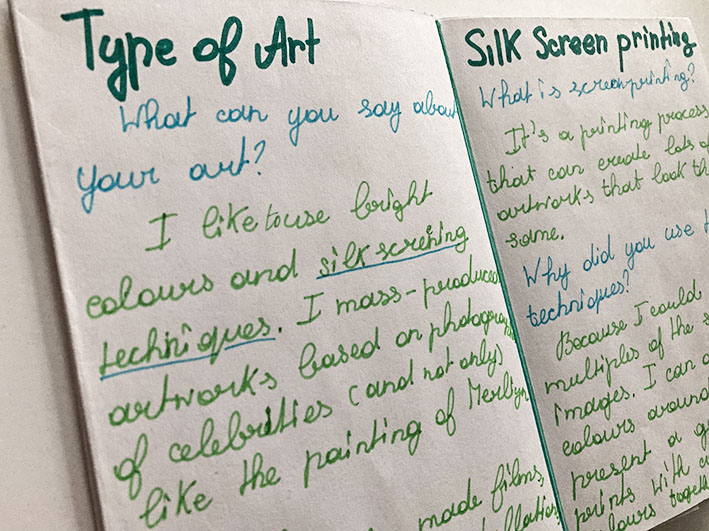 Type of Art
What can you say about
your art?
I like to use bright
colours and silk screning
techniques. I mass-produced
artworks based on
of celebrities (and not only)
like the painting of Merlyn
made films,
Silk Screen printing
What is screenprinting?
It's a printing process
that can create lots of
artworks that look the
same.
Why did you use
techniques?
Because I could
multiples of the
images. I can
colours around
present a
prints with